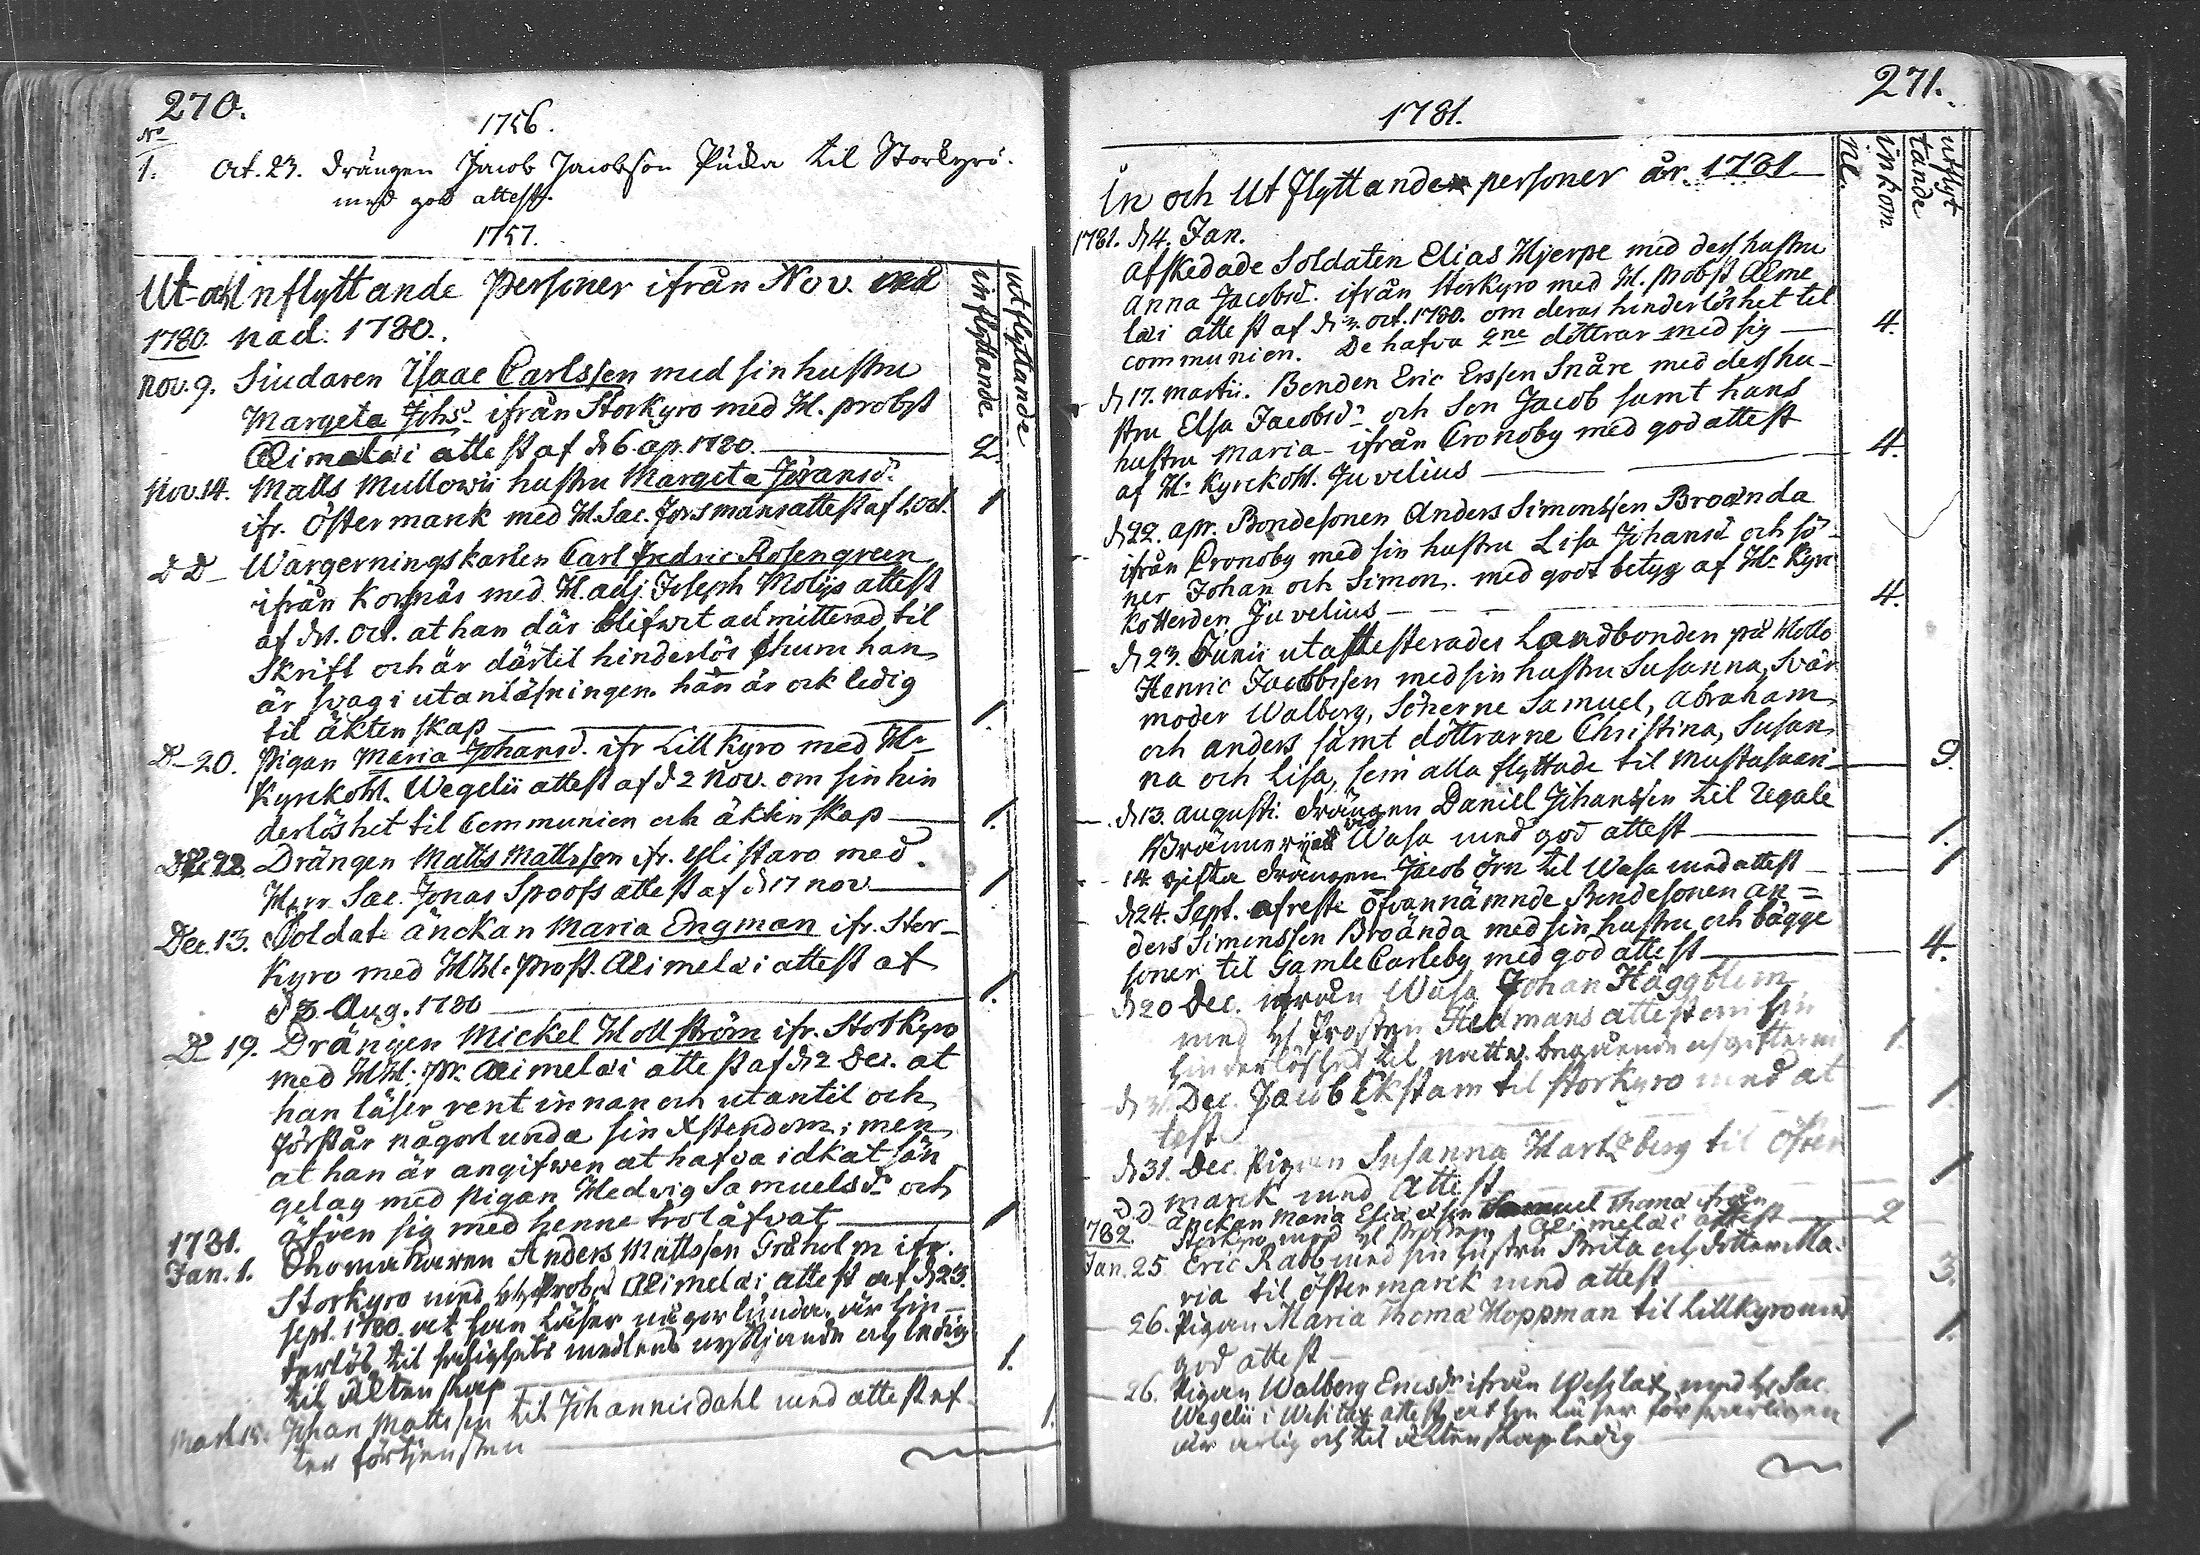 270.
No
1756.
1. Oct. 23. Drängen Jacob Jacobson til Storkyro.
med god attest.
1757.
Ut- och Inflyttande Personer ifrån Nov.
inflyttande
utflyttande
1780. nad: 1780.
Nov. 9. Isaac Carlssen med sin hustru
Margeta Johsd. ifrån Storkyro med H. probst
Alimelæi attest af d 6. ap. 1780. 2.
Nov. 14. Matts Mullowii hustru Margeta Jöransd.
ifr. Östermark med H. Sac. Forsmans attest af 1. Oct. 1
D D Wargerningskarlen Carl Fredric Rosengreen
ifrån Korsnäs med H. adj. Joseph Molijs attest
af d 1. Oct. at han där blifwit admitterad til
skrift och är därtil hinderlös ehuru han
är svag i utanläsningen. han är ock ledig
til äktenskap 1.
D 20. Pigan Maria Johansd. ifr Lillkyro med Hr
Kyrckoh. Wegelii attest af d 2 Nov. om sin hin
derlöshet til Communion och äktenskap 1.
Drängen Matts Mattssen ifr. Ylistaro med
Herr Sac. Jonas Spoofs attest af d 17 nov 1
Dec. 13. Soldate änckan Maria Engman ifr. Stor-
Kyro med HH. Prost. Alimelæi attest af
d 3. Aug. 1780 1.
D 19. Drängen Mickel Hollström ifr. Storkyro
med HH. pr. Alimelæi attest af d 2 Dec. at
han läser rent innan och utantil och
förstår någorlunda sin Xstendom; men
at han är angifwen at hafva idkat sän
gelag med pigan Hedvig Samuelsd. och
äfven sig med henne trolåfvat 1
1781.
Jan. 1. Skomakaren Anders Mattssen Gråholm ifr.
Storkyro med H Probst Alimelæi attest af d 23.
sept. 1780. at han läser någorlunda, är hin-
derlös til salighets medlens nyttjande och ledig
til Äktenskap 1.
Mart. 15. Johan Mattssen til Johannisdahl med attest ef-
ter förtjensten 1.
271.
1781.
In och Utflyttande personer år. 1781.
inkom
utflyt
tande
1781. d 4. Jan.
Afskedade Soldaten Elias Hjerpe med dess hustru
Anna Jacobsd. ifrån Storkyro med H. probst Alime
læi attest af d 3. Oct. 1780. om deras hinderlöshet til
communion. De hafva 2ne döttrar med sig 4.
d 17. Martii. Bonden Eric Erssen Snåre med dess hu-
stru Elsa Jacobsd. och Son Jacob samt hans
hustru Maria ifrån Cronoby med god attest
af Hr Kyrckoh. Juvelius 4.
d 22. apr. Bondesonen Anders Simonssen Broända
ifrån Cronoby med sin hustru Lisa Johansd och sö-
ner Johan och Simon. med godt betyg af Hr Kyrc
koherden Juvelius 4.
d 23. Junii utattesterades Landbonden på
Henric Jacobssen med sin hustru Susanna, Svär
moder Walborg, Sönerne Samuel, Abraham
och Anders samt döttrarne Christina, Susan
na och Lisa, som alla flyttade til Mustasaari 9.
d 13. Augusti. Drängen Daniel Johanssen til Regale
Bränneriet vid Wasa med god attest 1.
14 gifta Drängen Jacob Örn til Wasa med attest 1
d 24. Sept. afreste ofvannämnde Bondesonen An-
ders Simonssen Broända med sin hustru och bägge
soner til Gamle Carleby med god attest 4.
d 20 Dec. ifrån Wasa Johan Häggblom
med H Prosten Hedmans attest om sin
hinderlöshet til nattv. begående och giftermål 1.
d Dec. Jacob Ekstam til Storkyro med at
test 1
d 31. Dec. Pigan Susanna Hartzberg til Öster
marck med Attest 1
D D Änckan Maria Esia. Samuel Thoma ifrån
Storkyro med H Prosten Alimelæi attest 2
1782.
Jan. 25 Eric Rabb med sin hustru Brita och dotter Ma-
ria til Östermarck med attest 3.
26. Pigan Maria Thoma Hoppman til Lillkyro med
god attest 1.
26. Pigan Walborg Ericsdr ifrån med H Sac.
Wegelii i attest at hon läser försvarligen
är ärlig och til äktenskap ledig 1